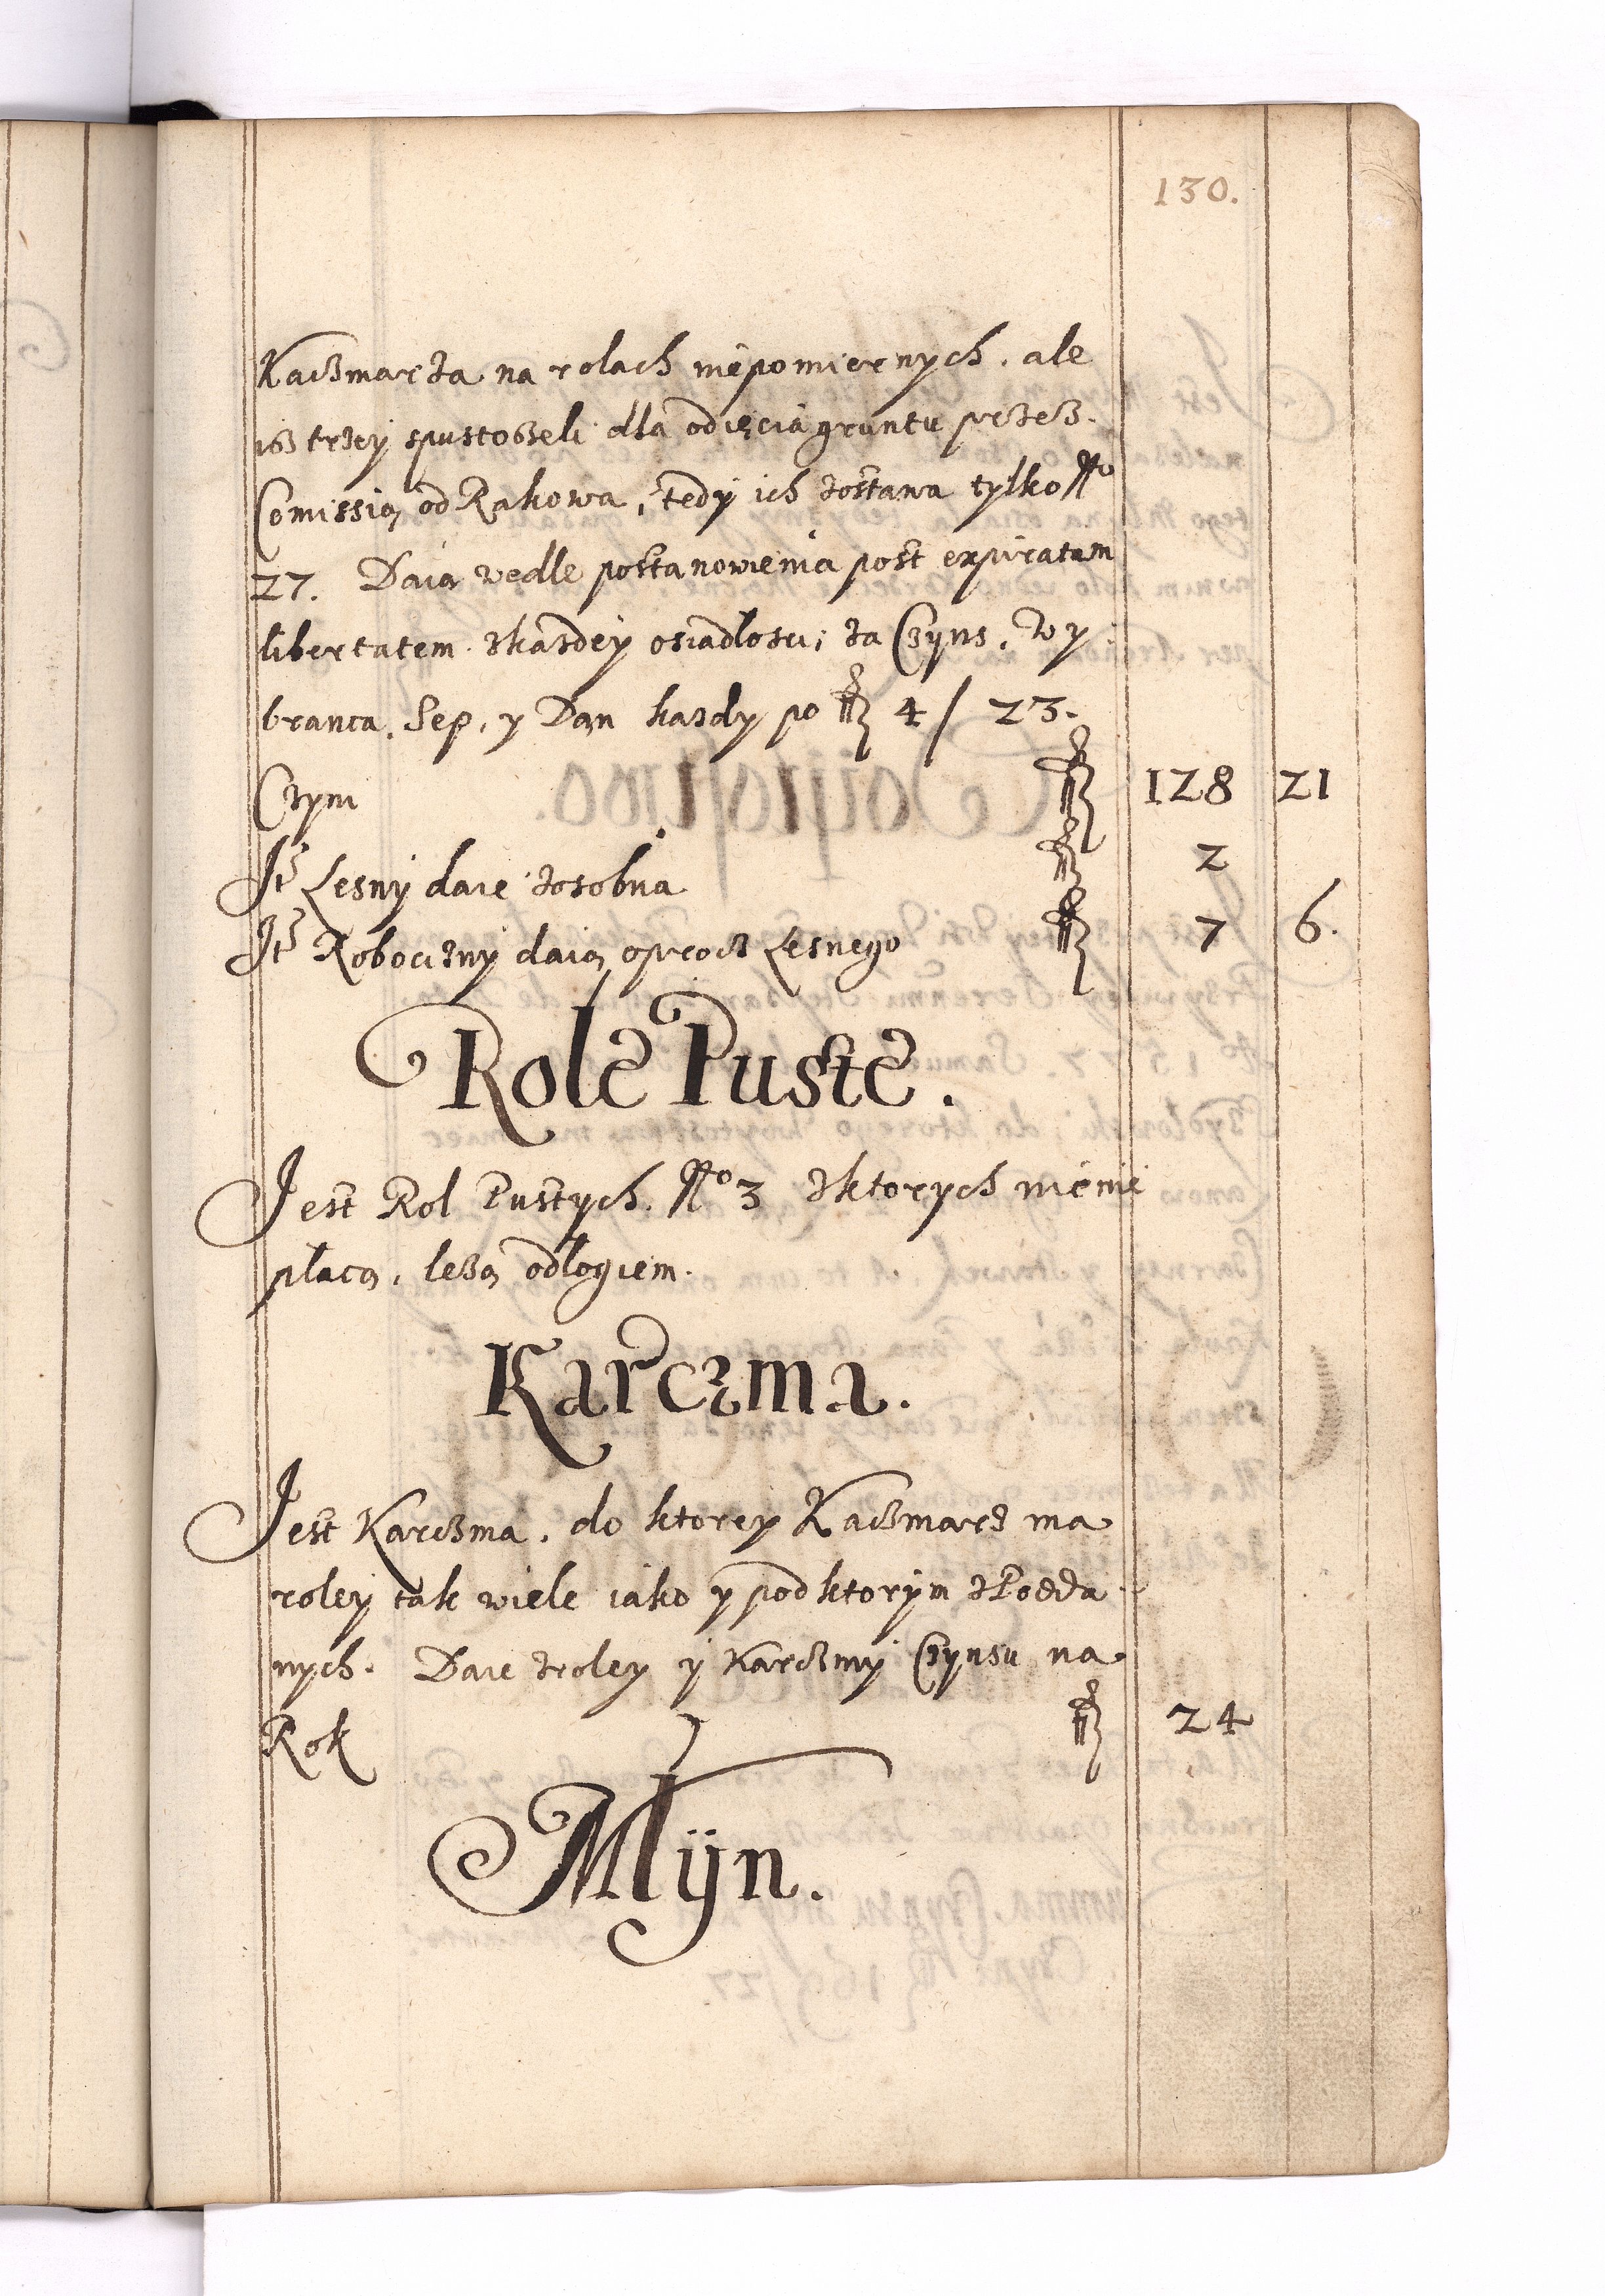 130.
Kaczmarza na rolach niepomiernych. ale
isz trzey spustoszeli dla odięcia gruntu przesz
Comissią od Rakowa, tedy ich zostawa tylko No
27. Daią wedle postanowienia post expiratam
libertatem zkazdey osiadłosci; za Czyns, Wy
branca, Sep, y Dan kazdy po fl 4/ 23.
Czyni fl 128 21
Itẽ Lesny daie zosobna fl 2
Itẽ Robocizny daią oprocz Lesnego fl 7 6.
Role Puste.
Jest Rol Pustych. No 3 zktorych nie nie
płacą, leżą odłogiem.
Karczma.
Jest Karczma, do ktorey Kaczmarz ma
roley tak wiele iako y pod ktorym zPodda
nych. Daie zroley y Karczmy Czynsu na
Rok fl 24
Młyn.